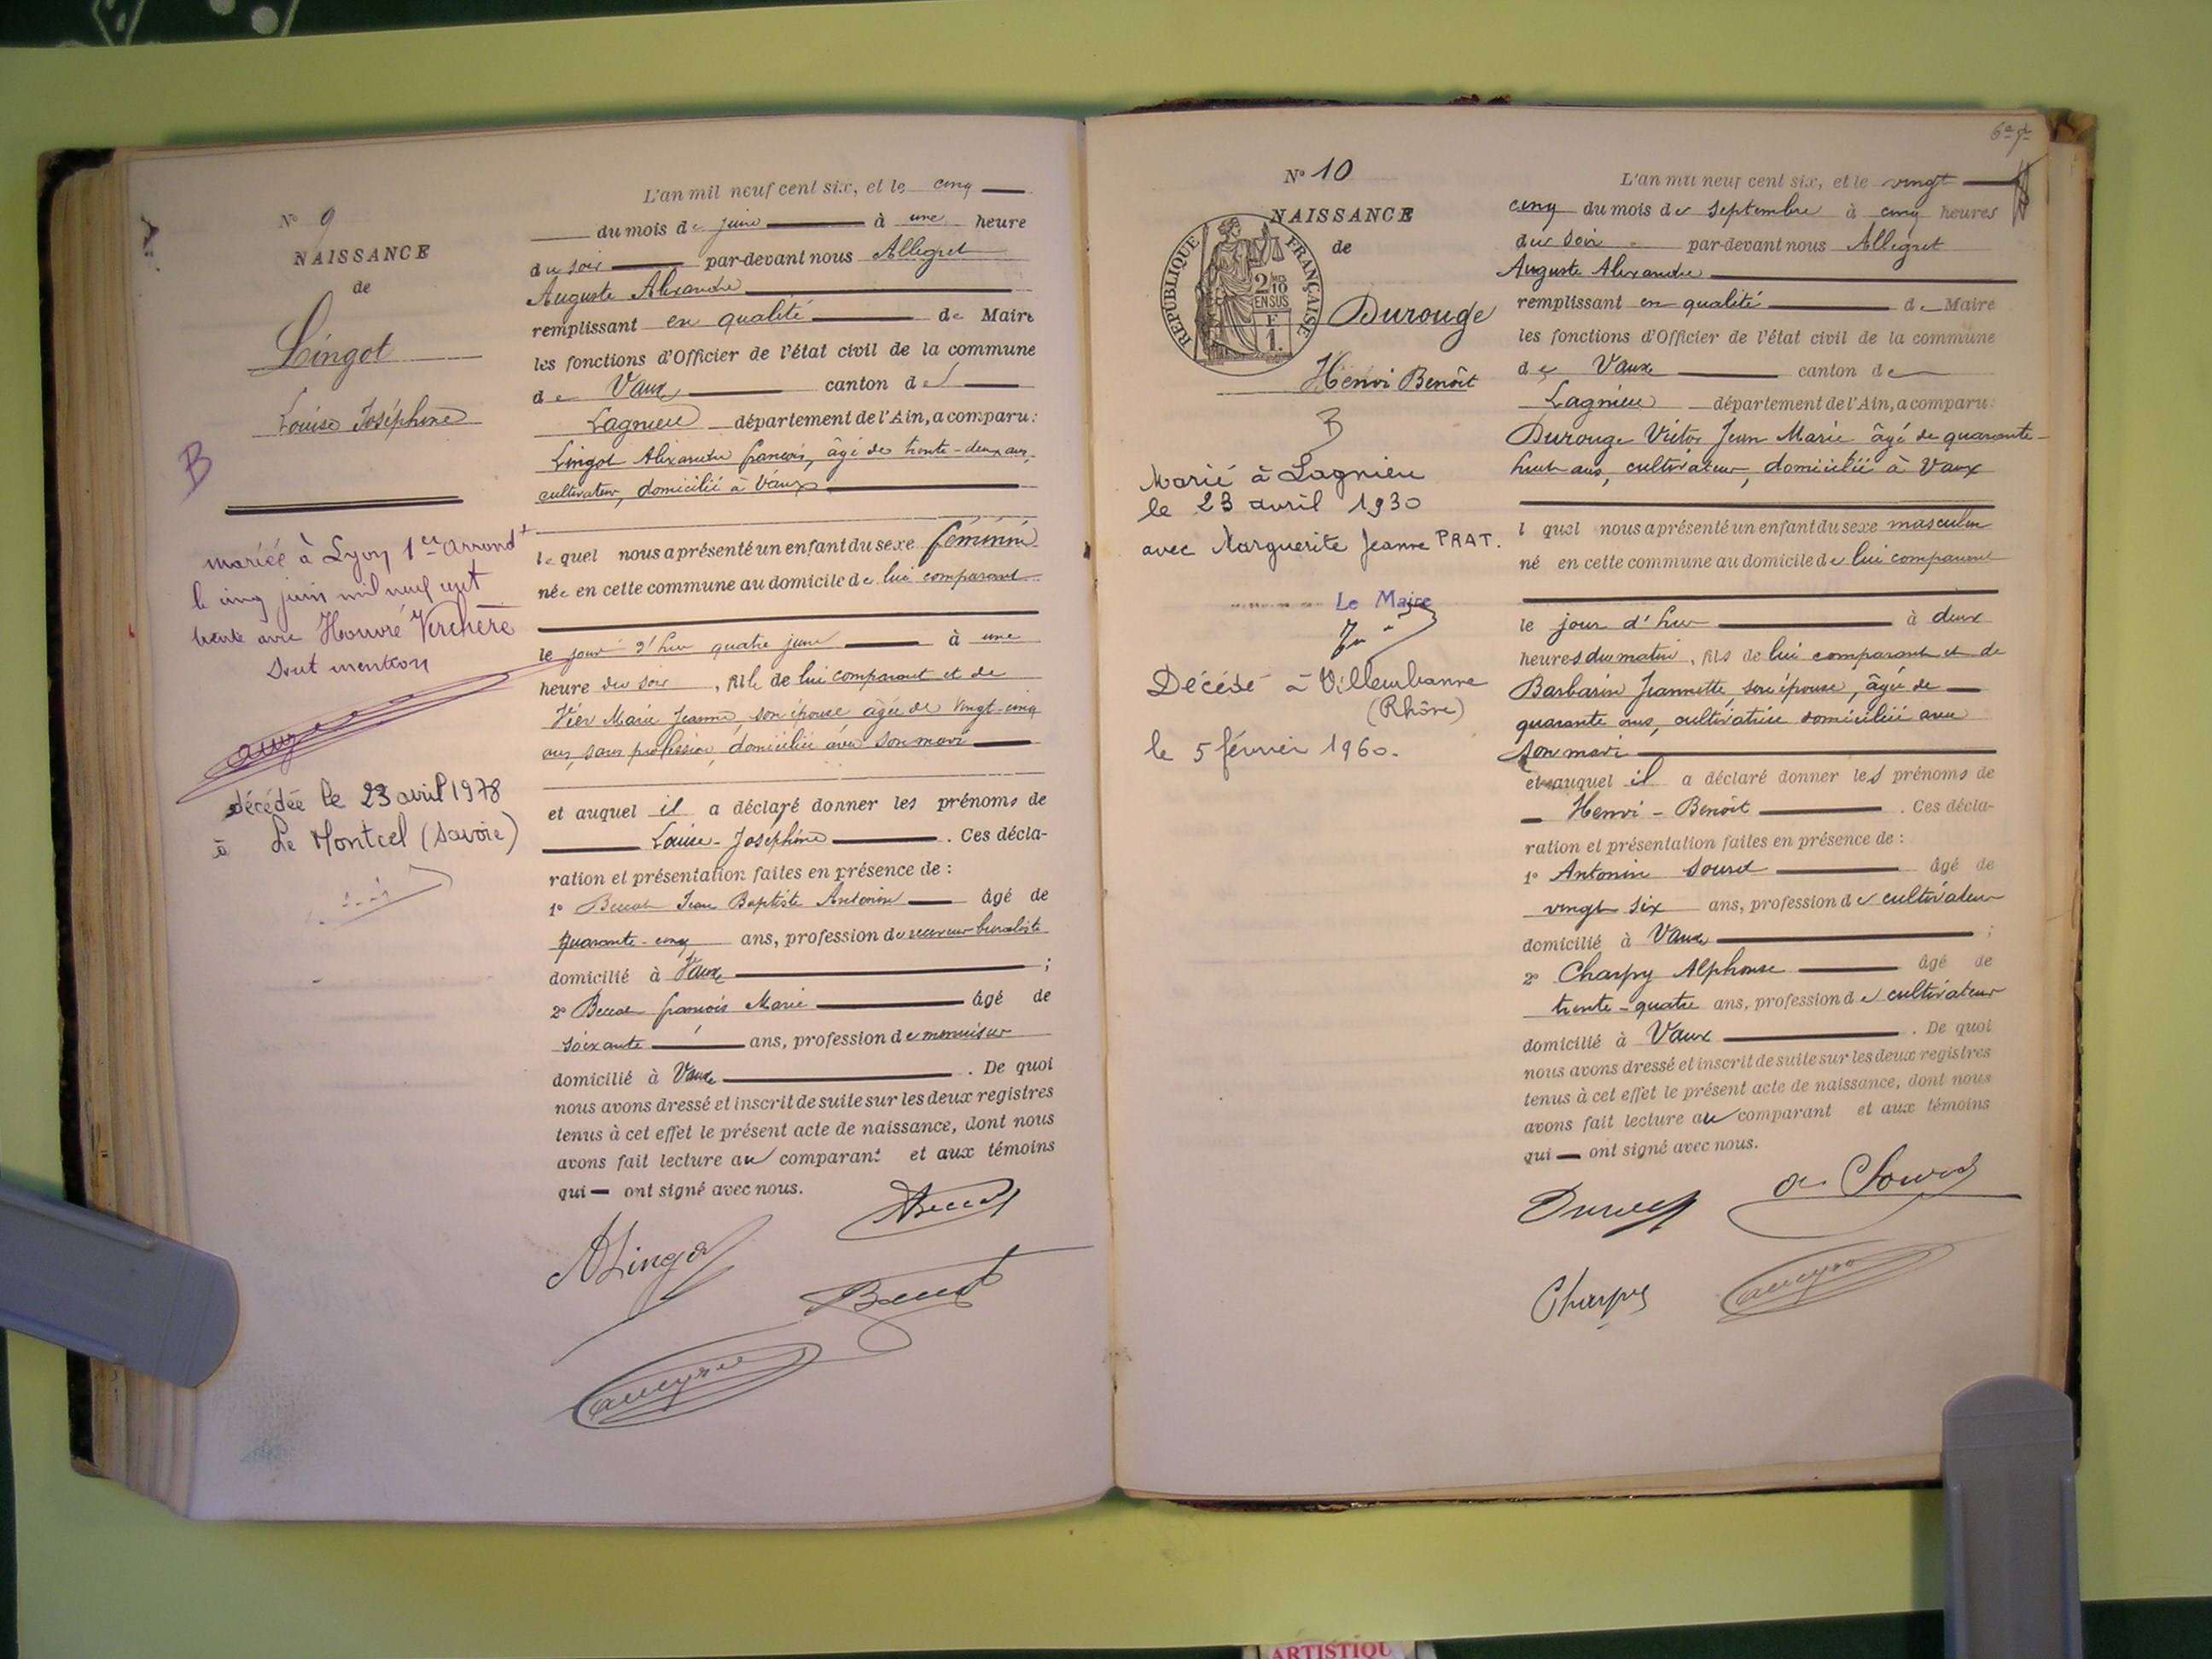 N° 9
NAISSANCE
de
Lingot
Louise Joséphine
B
mariée à Lyon 1er arrondt
le cinq juin mil neuf cent
trente avec Honoré Verchère
Dont mention
décédée le 23 avril 1978
à Le Montcel (Savoie)
L'an mil neuf cent six, et le cinq
du mois de juin à une heure
du soir par-devant nous Allegret
Auguste Alexandre
remplissant en qualité de Maire
les fonctions d'Officier de l'état civil de la commune
de Vaux canton de
Lagnieu département de l'Ain, a comparu:
Lingot Alexandre françois, âgé de trente-deux ans,
cultivateur, domicilié à Vaux
le quel nous a présenté un enfant du sexe féminin
née en cette commune au domicile de lui comparant
le jour d'hier quatre juin à une
heure du soir, fille de lui comparant et de
Marie Jeanne, son épouse âgée de vingt-cinq
ans, sans profession, domiciliée avec son mari
et auquel il a déclaré donner les prénoms de
Louise-Joséphine. Ces décla-
ration et présentation faites en présence de :
1° Jean Baptiste Antonin âgé de
quarante-cinq ans, profession de receveur buraliste
domicilié à Vaux ;
2° françois Marie âgé de
soixante ans, profession de menuisier
domicilié à Vaux. De quoi
nous avons dressé et inscrit de suite sur les deux registres
tenus à cet effet le présent acte de naissance, dont nous
avons fait lecture au comparant et aux témoins
qui — ont signé avec nous.
ALingot
N° 10
NAISSANCE
de
RÉPUBLIQUE FRANÇAISE
2/10
EN SUS
F
1.
Durouge
Henri Benoît
B
Marié à Lagnieu
le 23 avril 1930
avec Marguerite Jeanne PRAT.
Le Maire
Décédé à Villeurbanne
(Rhône)
le 5 février 1960.
L'an mil neuf cent six, et le vingt
cinq du mois de septembre à cinq heures
du soir par-devant nous Allegret
Auguste Alexandre
remplissant en qualité de Maire
les fonctions d'Officier de l'état civil de la commune
de Vaux canton de
Lagnieu département de l'Ain, a comparu:
Durouge Victor Jean Marie âgé de quarante-
huit ans, cultivateur, domicilié à Vaux
l quel nous a présenté un enfant du sexe masculin
né en cette commune au domicile de lui comparant
le jour d'hier à deux
heures du matin, fils de lui comparant et de
Barbarin Jeannette, son épouse, âgée de
quarante ans, cultivatrice domiciliée avec
son mari
et auquel il a déclaré donner les prénoms de
Henri-Benoît. Ces décla-
ration et présentation faites en présence de :
1° Antonin Sourd âgé de
vingt six ans, profession de cultivateur
domicilié à Vaux ;
2° Charpy Alphonse âgé de
trente-quatre ans, profession de cultivateur
domicilié à Vaux. De quoi
nous avons dressé et inscrit de suite sur les deux registres
tenus à cet effet le présent acte de naissance, dont nous
avons fait lecture au comparant et aux témoins
qui — ont signé avec nous.
Charpy
ARTISTIQU